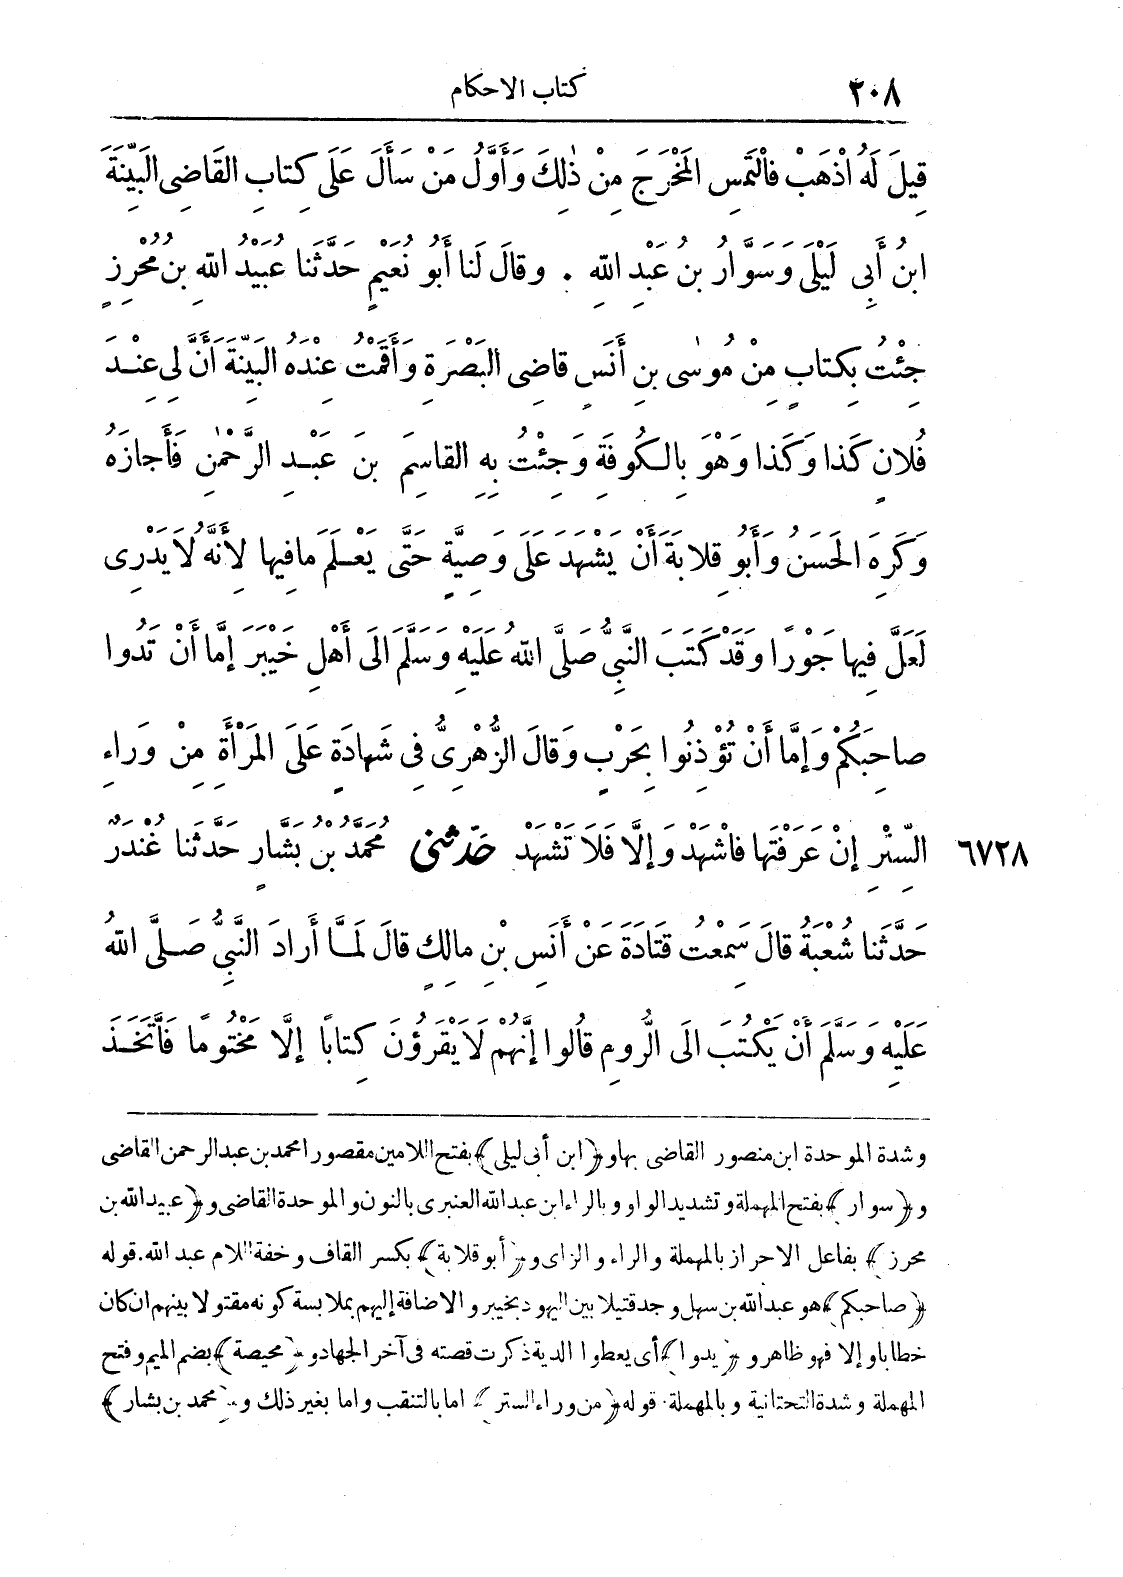 ٢٠٨ كتاب الاحكام
قِيلَ لَهُ اذْهَبْ فالْتَمِسِ المَخْرَجَ مِنْ ذٰلِكَ وَأَوَّلُ مَنْ سَأَلَ عَلَى كِتابِ القَاضِى البَيِّنَةَ
ابنُ أَبِى لَيْلَى وَسَوَّارُ بنُ عَبْدِ اللهِ . وقالَ لَنا أَبُو نُعَيْمٍ حَدَّثَنا عُبَيْدُ اللهِ بنُ مُحْرِزٍ
جِئْتُ بِكتابٍ مِنْ مُوسٰى بنِ أَنَسٍ قاضِى البَصْرَةِ وَأَقَمْتُ عِنْدَهُ البَيِّنَةَ أَنَّ لِى عِنْدَ
فُلانٍ كَذا وَكَذا وَهْوَ بِالكُوفَةِ وَجِئْتُ بِهِ القاسِمَ بنَ عَبْدِ الرَّحْمٰنِ فَأَجازَهُ
وَكَرِهَ الحَسَنُ وَأَبُو قِلابَةَ أَنْ يَشْهَدَ عَلَى وَصِيَّةٍ حَتَّى يَعْلَمَ مافِيها لِأَنَّهُ لَا يَدْرِى
لَعَلَّ فِيها جَوْرًا وَقَدْ كَتَبَ النَّبِىُّ صَلَّى اللهُ عَلَيْهِ وَسَلَّمَ الَى أَهْلِ خَيْبَرَ إِمَّا أَنْ تَدُوا
صاحِبَكُمْ وَإِمَّا أَنْ تُؤْذِنُوا بِحَرْبٍ وَقالَ الزُّهْرِىُّ فِى شَهادَةٍ عَلَى المَرْأَةِ مِنْ وَراءِ
السِّتْرِ إِنْ عَرَفْتَها فاشْهَدْ وَإِلَّا فَلَا تَشْهَدْ حَدَّثَنى مُحَمَّدُ بْنُ بَشَّارٍ حَدَّثَنا غُنْدَرٌ ٦٧٢٨
حَدَّثَنا شُعْبَةُ قالَ سَمِعْتُ قَتَادَةَ عَنْ أَنَسِ بْنِ مالِكٍ قالَ لَمَّا أَرادَ النَّبِىُّ صَلَّى اللهُ
عَلَيْهِ وَسَلَّمَ أَنْ يَكْتُبَ الَى الرُّومِ قالُوا إِنَّهُمْ لَا يَقْرَؤُنَ كِتابًا إِلَّا مَخْتُومًا فَاتَّخَذَ
وشدة الموحدة ابن منصور القاضى بهاو﴿ابن أبى ليلى﴾بفتح اللامين مقصورا محمد بن عبد الرحمن القاضى
و﴿سوار﴾بفتح المهملة وتشديد الواو وبالراء ابن عبد الله العنبرى بالنون والموحدة القاضى و﴿عبيد الله بن
محرز﴾ بفاعل الاحراز بالمهملة والراء والزاى و﴿أبو قلابة﴾بكسر القاف وخفة اللام عبد الله. قوله
﴿صاحبكم﴾هو عبد الله بن سهل وجد قتيلا بين اليهود بخيبر والاضافة إليهم بملابسة كونه مقتولا بينهم ان كان
خطابا وإلا فهو ظاهر و﴿يدوا﴾أى يعطوا الدية ذكرت قصته فى آخر الجهاد و﴿محيصة﴾بضم الميم وفتح
المهملة وشدة التحتانية وبالمهملة. قوله﴿من وراء الستر﴾ اما بالتنقب واما بغير ذلك و﴿محمد بن بشار﴾